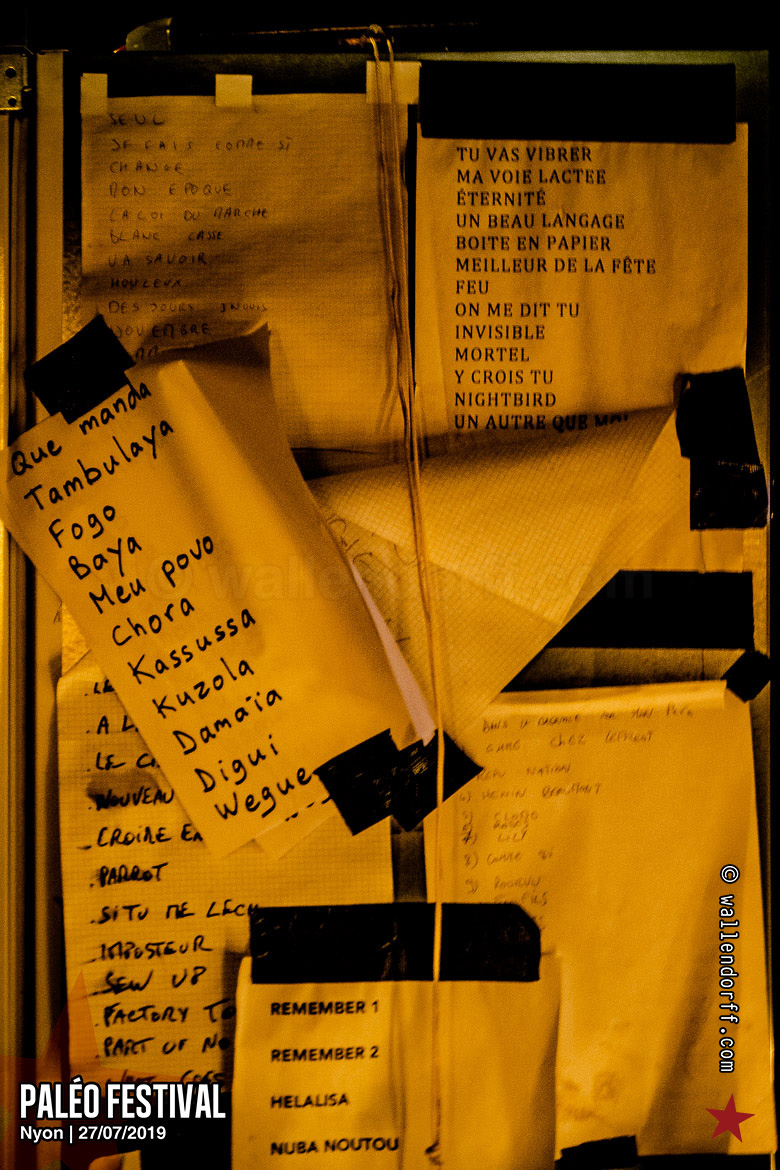 SEUL
JE FAIS COMME SI
CHANGE
MON EPOQUE
LA LOI DU MARCHE
BLANC CASSE
VA SAVOIR
HOULEUX
DES JOURS INOUIS
NOVEMBRE
TU VAS VIBRER
MA VOIE LACTEE
ÉTERNITÉ
UN BEAU LANGAGE
BOITE EN PAPIER
MEILLEUR DE LA FÊTE
FEU
ON ME DIT TU
INVISIBLE
MORTEL
Y CROIS TU
NIGHTBIRD
UN AUTRE QUE MOI
Que manda
Tambulaya
Fogo
Baya
Meu povo
Chora
Kassussa
Kuzola
Damaïa
Digui
Wegue
.LE
.A L
.LE
.NOUVEAU
.CROIRE
.PARROT
.SI TU ME LECH
.IMPOSTEUR
.SEW UP
.FACTORY TO
.PART OF NO
DANS LA MON PERE
CHEZ LEPREST
NATION
HENIN BEAUMONT
5)
7) LILY
8) COMME SI
9)
REMEMBER 1
REMEMBER 2
HELALISA
NUBA NOUTOU
© wallendorff.com
© wallendorff.com
PALÉO FESTIVAL
Nyon | 27/07/2019